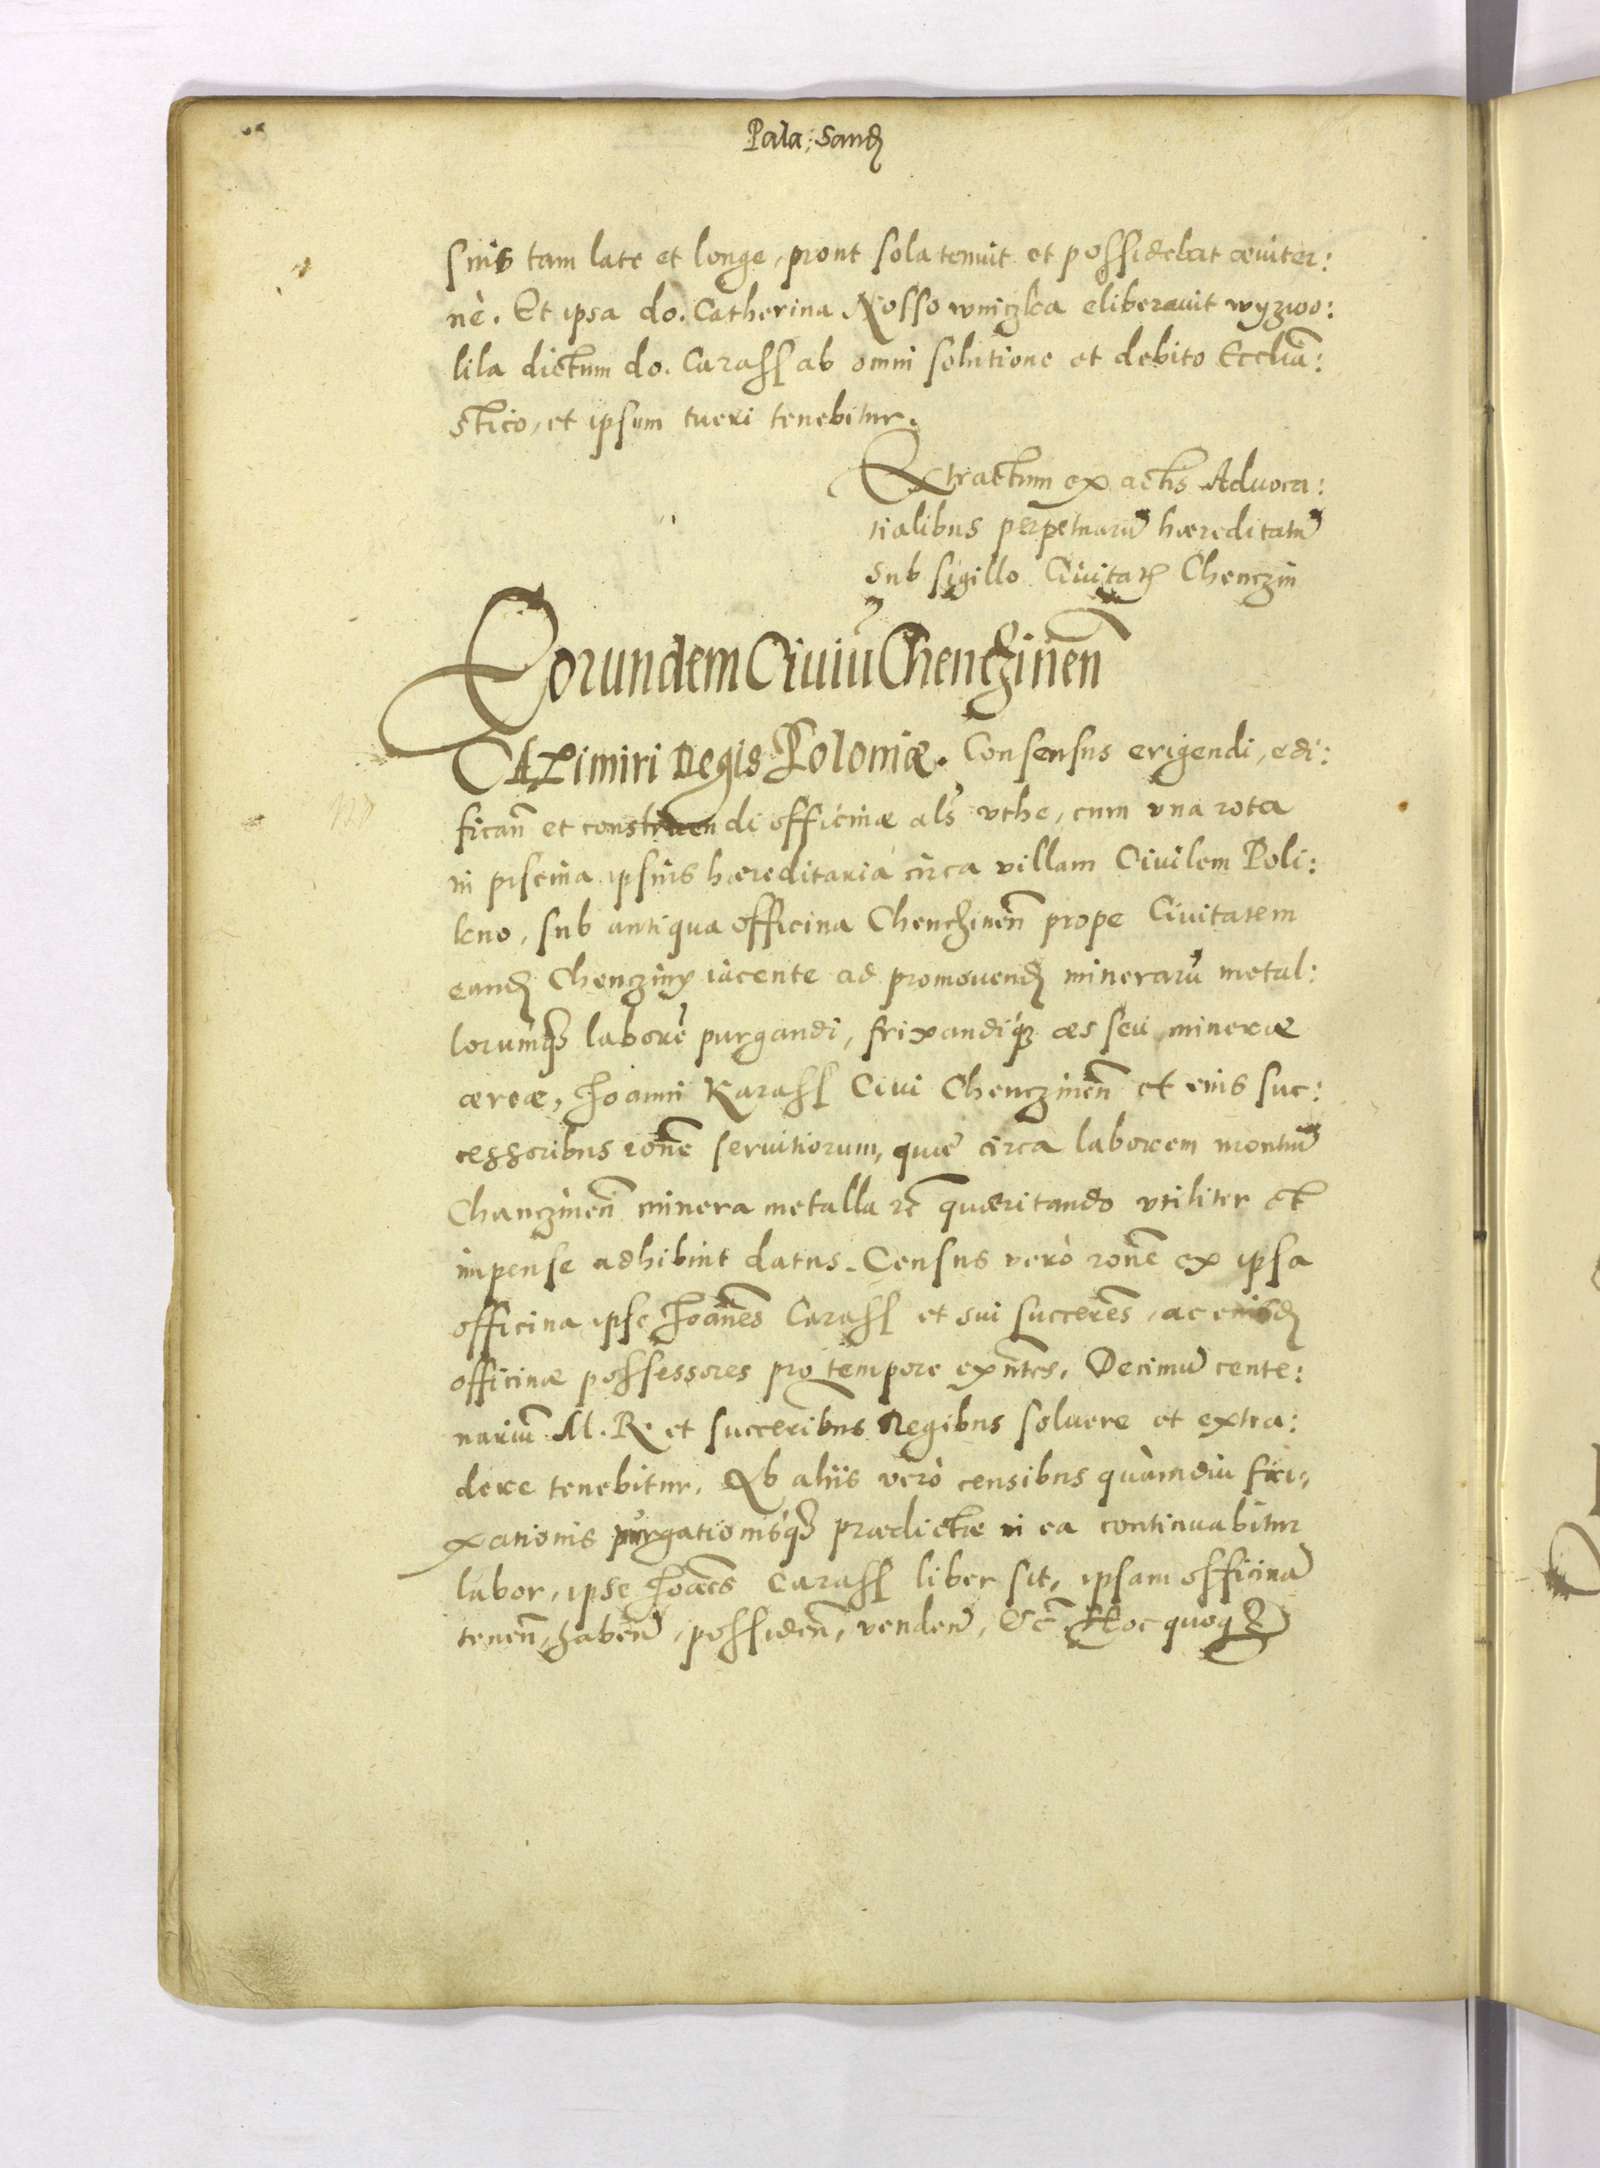 Pala: Sand
suis tam late et longe, prout sola tenuit et possidebat æuiter:
nè. Et ipsa do. Catherina Nossowniczka eliberauit wyzwo:
lila dictum do. Carass ab omni solutione et debito Eccliã:
stico, et ipsum tueri tenebitur.
Extractum ex actis Aduoca:
tialibus perpetuarũ hæreditatũ
sub sigillo Ciuitatis Chenczin
Eorundem Ciuiũ Chenczinen̄
CAzimiri Regis Poloniæ. Consensus erigendi, edi:
fican̄ et construendi officinæ als vthe, cum vna rota
in piscina ipsius hæreditaria circa villam Ciuilem Poli:
kno, sub antiqua officina Chenczinen̄ prope Ciuitatem
eand Chencziny iacente ad promouend minerarũ metal:
lorumq; laborẽ purgandi, frixandiq; æs seu mineræ
æreæ, Joanni Karass Ciui Chenczinen̄ et eius suc:
cessoribus ron̄e seruitiorum, quæ circa laborem montiũ
Chanczinen̄ minera metalla etc̄ quæritando vtiliter et
impense adhibuit datus. Census verò ron̄e ex ipsa
officina ipse Joan̄es Carass et sui succeres̄, ac eiusd
officinæ possessores pro tempore exn̄tes, Decimũ cente:
nariũ M. R. et succeribus Regibus soluere et extra:
dere tenebitur, Ab aliis verò censibus quàmdiu fri:
xationis purgationisq; prædictæ in ea continuabitur
labor, ipse Joan̄es Carass liber sit, ipsam officinã
tenen̄, haben̄, possiden̄, venden̄, &c̄ Hoc quoq;